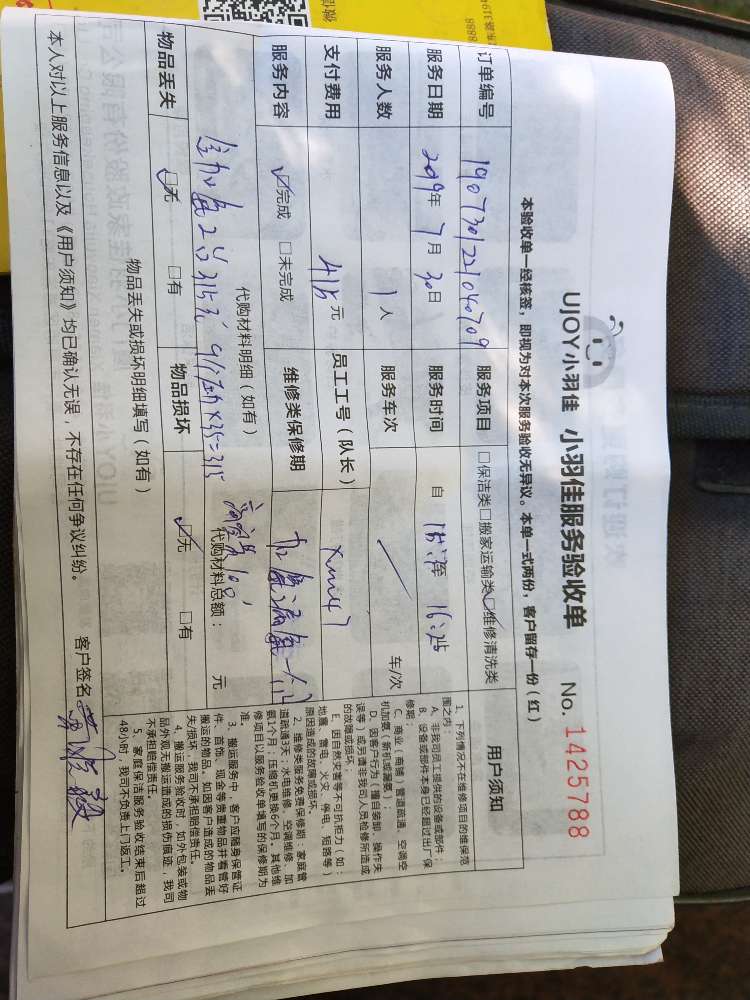 UJOY小羽佳 小羽佳服务验收单 No. 1425788
本验收单一经核签，即视为对本次服务验收无异议。本单一式两份，客户留存一份（红）
订单编号 1907301221040709 服务项目 □保洁类□搬家运输类☑维修清洗类
服务日期 2019年7月30日 服务时间 自
服务人数 1人 服务车次 / 车/次
支付费用 415元 员工工号（队长） xm147
服务内容 ☑完成 □未完成 维修类保修期
代购材料明细（如有） 代购材料总额： 元
315元 ×35=315
物品丢失 ☑无 □有 物品损坏 ☑无 □有
物品丢失或损坏明细填写（如有）
本人对以上服务信息以及《用户须知》均已确认无误，不存在任何争议纠纷。 客户签名
用户须知
1、下列情况不在维修项目的维保范
围之内：
A、非我司员工提供的设备或部件；
B、设备或部件本身已经超过出厂保
修期；
C、商业（商铺）管道疏通，空调空
机加氨（新机或漏氨）；
D、因客户行为（擅自装卸、操作失
误等）或另请非我司人员检修所造成
的故障或损坏。
E、因自然灾害等不可抗拒力（如：
地震、雷电、火灾、停电、短路等）
原因造成的故障或损坏。
2、维修类服务免费保修期：家庭管
道疏通3天；水电维修、空调维修、加
氨1个月；压缩机更换6个月。其他维
修项目以服务验收单填写的保修期为
准。
3、搬运服务中，客户应随身保管证
件、首饰、现金等贵重物品并看管好
搬运的物品。如因客户造成的物品丢
失/损坏，我司不承担赔偿责任。
4、搬运服务验收时，如外包装或物
品外观无搬运造成的损伤痕迹，我司
不承担赔偿责任。
5、家庭保洁服务验收结束后超过
48小时，我司不负责上门返工。